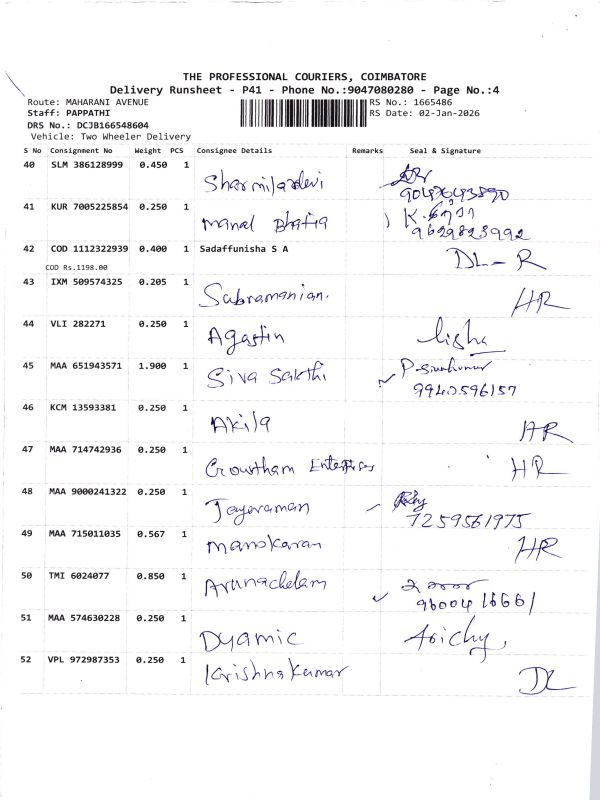 THE PROFESSIONAL COURIERS, COIMBATORE
Delivery Runsheet - P41 - Phone No.:9047080280 - Page No.:4
Route: MAHARANI AVENUE RS No.: 1665486
Staff: PAPPATHI RS Date: 02-Jan-2026
DRS No.: DCJB166548604
Vehicle: Two Wheeler Delivery
S No Consignment No Weight PCS Consignee Details Remarks Seal & Signature
40 SLM 386128999 0.450 1
Sharmiladevi
41 KUR 7005225854 0.250 1
Manal Bhatia
9629823992
42 COD 1112322939 0.400 1 Sadaffunisha S A
DL - R
COD Rs.1198.00
43 IXM 509574325 0.205 1
Subramanian. HR
44 VLI 282271 0.250 1
Agastin lisha
45 MAA 651943571 1.900 1
Siva Sakthi P. Sivakumar
9940596157
46 KCM 13593381 0.250 1
Akila AR
47 MAA 714742936 0.250 1
Growtham Enterprises HR
48 MAA 9000241322 0.250 1
Jayaraman
7259561975
49 MAA 715011035 0.567 1
Manokaran HR
50 TMI 6024077 0.850 1
Arunachelam
9600416661
51 MAA 574630228 0.250 1
Dyamic
52 VPL 972987353 0.250 1
Krishnakumar DL